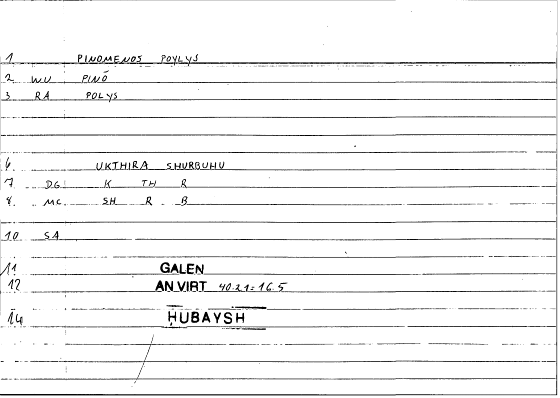 1 PINOMENOS POYLYS
2. WU PINŌ
3. RA POLYS
6. UKTHIRA SHURBUHU
7 DG K TH R
8. MC. SH R B
10 SA
11 GALEN
12 AN VIRT 40.21=16.5
14 ḤUBAYSH